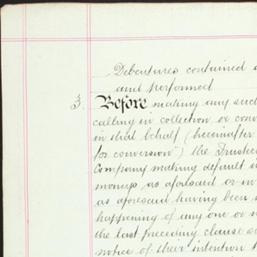 Debentures contained
and performed
3. Before making any such
calling in collection or conv
in that behalf (hereinafter
for conversion") the Trustee
Company making default i
moneys as aforesaid or in
as aforesaid having been
happening of any one or
the last preceding clause
notice of their intention